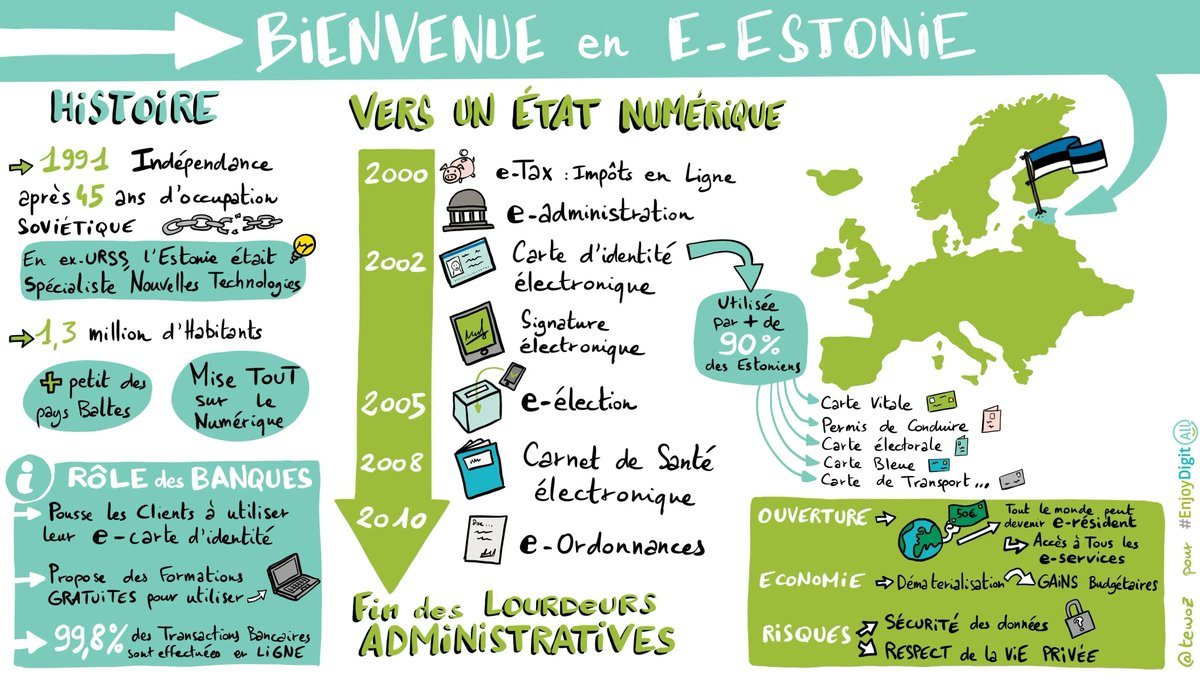 BIENVENUE en E-ESTONIE
HISTOIRE
1991 Indépendance
après 45 ans d'occupation
SOVIÉTIQUE
En ex-URSS, l'Estonie était
Spécialiste Nouvelles Technologies
1,3 million d'Habitants
+ petit des
pays Baltes
Mise TOUT
sur le
Numérique
i RÔLE des BANQUES
Pousse les Clients à utiliser
leur e-carte d'identité
Propose des Formations
GRATUITES pour utiliser
99,8% des Transactions Bancaires
sont effectuées en LIGNE
VERS UN ÉTAT NUMÉRIQUE
2000 e-Tax : Impôts en Ligne
e-administration
2002 Carte d'identité
électronique
Signature
électronique
2005 e-élection
2008 Carnet de Santé
électronique
2010
Doc...
e-Ordonnances
Fin des LOURDEURS
ADMINISTRATIVES
Utilisée
par + de
90%
des Estoniens
Carte Vitale
Permis de Conduire
Carte électorale
Carte Bleue
Carte de Transport...
OUVERTURE
50€
Tout le monde peut
devenir e-résident
Accès à Tous les
e-services
ECONOMIE Dématerialisation GAINS Budgétaires
RISQUES SÉCURITÉ des données
?
RESPECT de la VIE PRIVÉE
@tewoz pour #EnjoyDigitAll